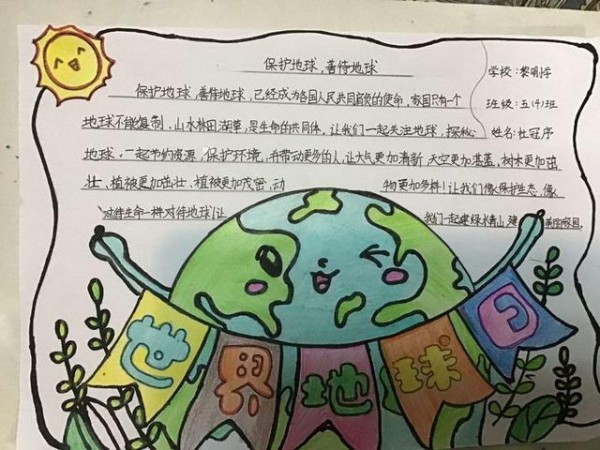 保护地球,善待地球
学校:黎明小学
班级:五(4)班
姓名:杜冠序
保护地球,善待地球,已经成为各国人民共同肩负的使命,家园只有一个
地球不能复制,山水林田湖草,是生命的共同体,让我们一起关注地球,探秘
地球,一起节约资源,保护环境,并带动更多的人,让大气更加清新,天空更加湛蓝,树木更加茁
壮、植被更加茁壮、植被更加茂密,动物更加多样!让我们像保护生态,像
对待生命一样对待地球!让我们一起建绿水青山,建美丽家园。
世界地球日